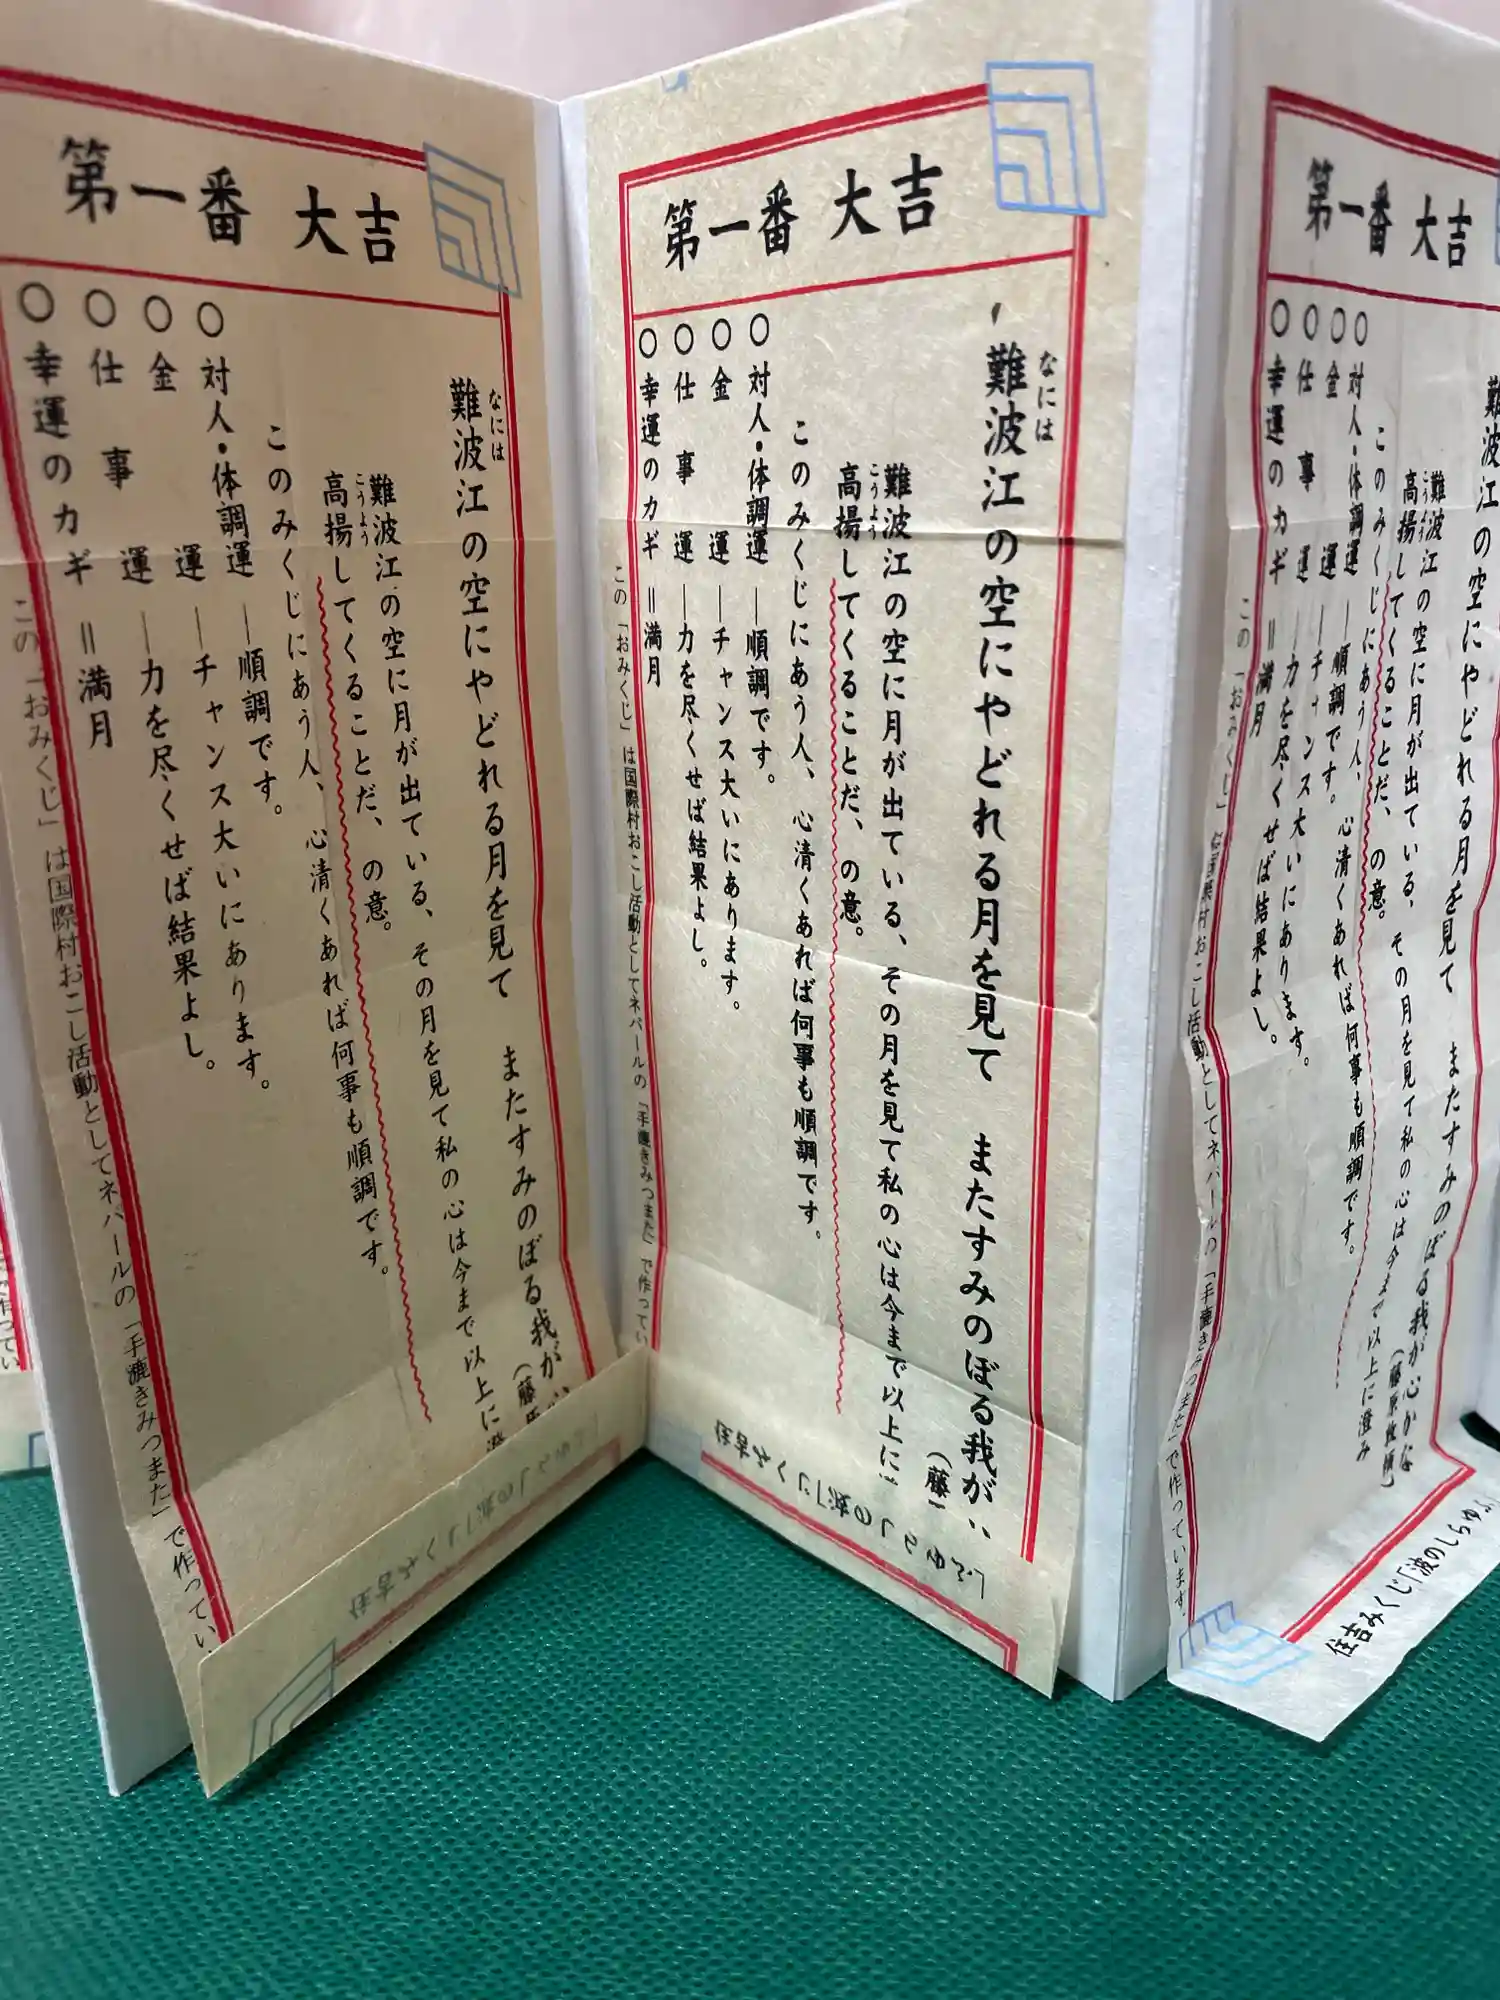 第一番 大吉
難波江の空にやどれる月を見て またすみのぼる我が
なには
難波江の空に月が出ている、その月を見て私の心は今まで以上に
高揚してくることだ、の意。
こうよう
このみくじにあう人、心清くあれば何事も順調です。
○対人・体調運―順調です。
○金運―チャンス大いにあります。
○仕事運―力を尽くせば結果よし。
○幸運のカギ=満月
この「おみくじ」は国際村おこし活動としてネパールの「手漉きみつまた」で作ってい
第一番 大吉
難波江の空にやどれる月を見て またすみのぼる我が
なには
(藤
難波江の空に月が出ている、その月を見て私の心は今まで以上に
高揚してくることだ、の意。
こうよう
このみくじにあう人、心清くあれば何事も順調です。
○対人・体調運―順調です。
○金運―チャンス大いにあります。
○仕事運―力を尽くせば結果よし。
○幸運のカギ=満月
この「おみくじ」は国際村おこし活動としてネパールの「手漉きみつまた」で作ってい
第一番 大吉
難波江の空にやどれる月を見て またすみのぼる我が心かな
難波江の空に月が出ている、その月を見て私の心は今まで以上に澄み
高揚してくることだ、の意。
このみくじにあう人、心清くあれば何事も順調です。
○対人・体調運―順調です。
○金運―チャンス大いにあります。
○仕事運―力を尽くせば結果よし。
○幸運のカギ=満月
この「おみくじ」は国際村おこし活動としてネパールの「手漉きみつまた」で作っています。
住吉みくじ「波のしらゆふ